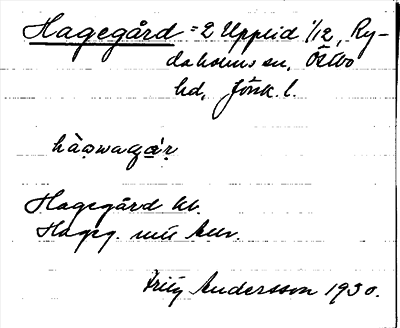 Hagegård = 2 Upplid 1/12, Ry-
daholms sn, Östbo
hd, Jönk. l.
hàǫwagạ́r̥
Hagegård kb.
Hageg. mtl
Fritz Andersson 1930.